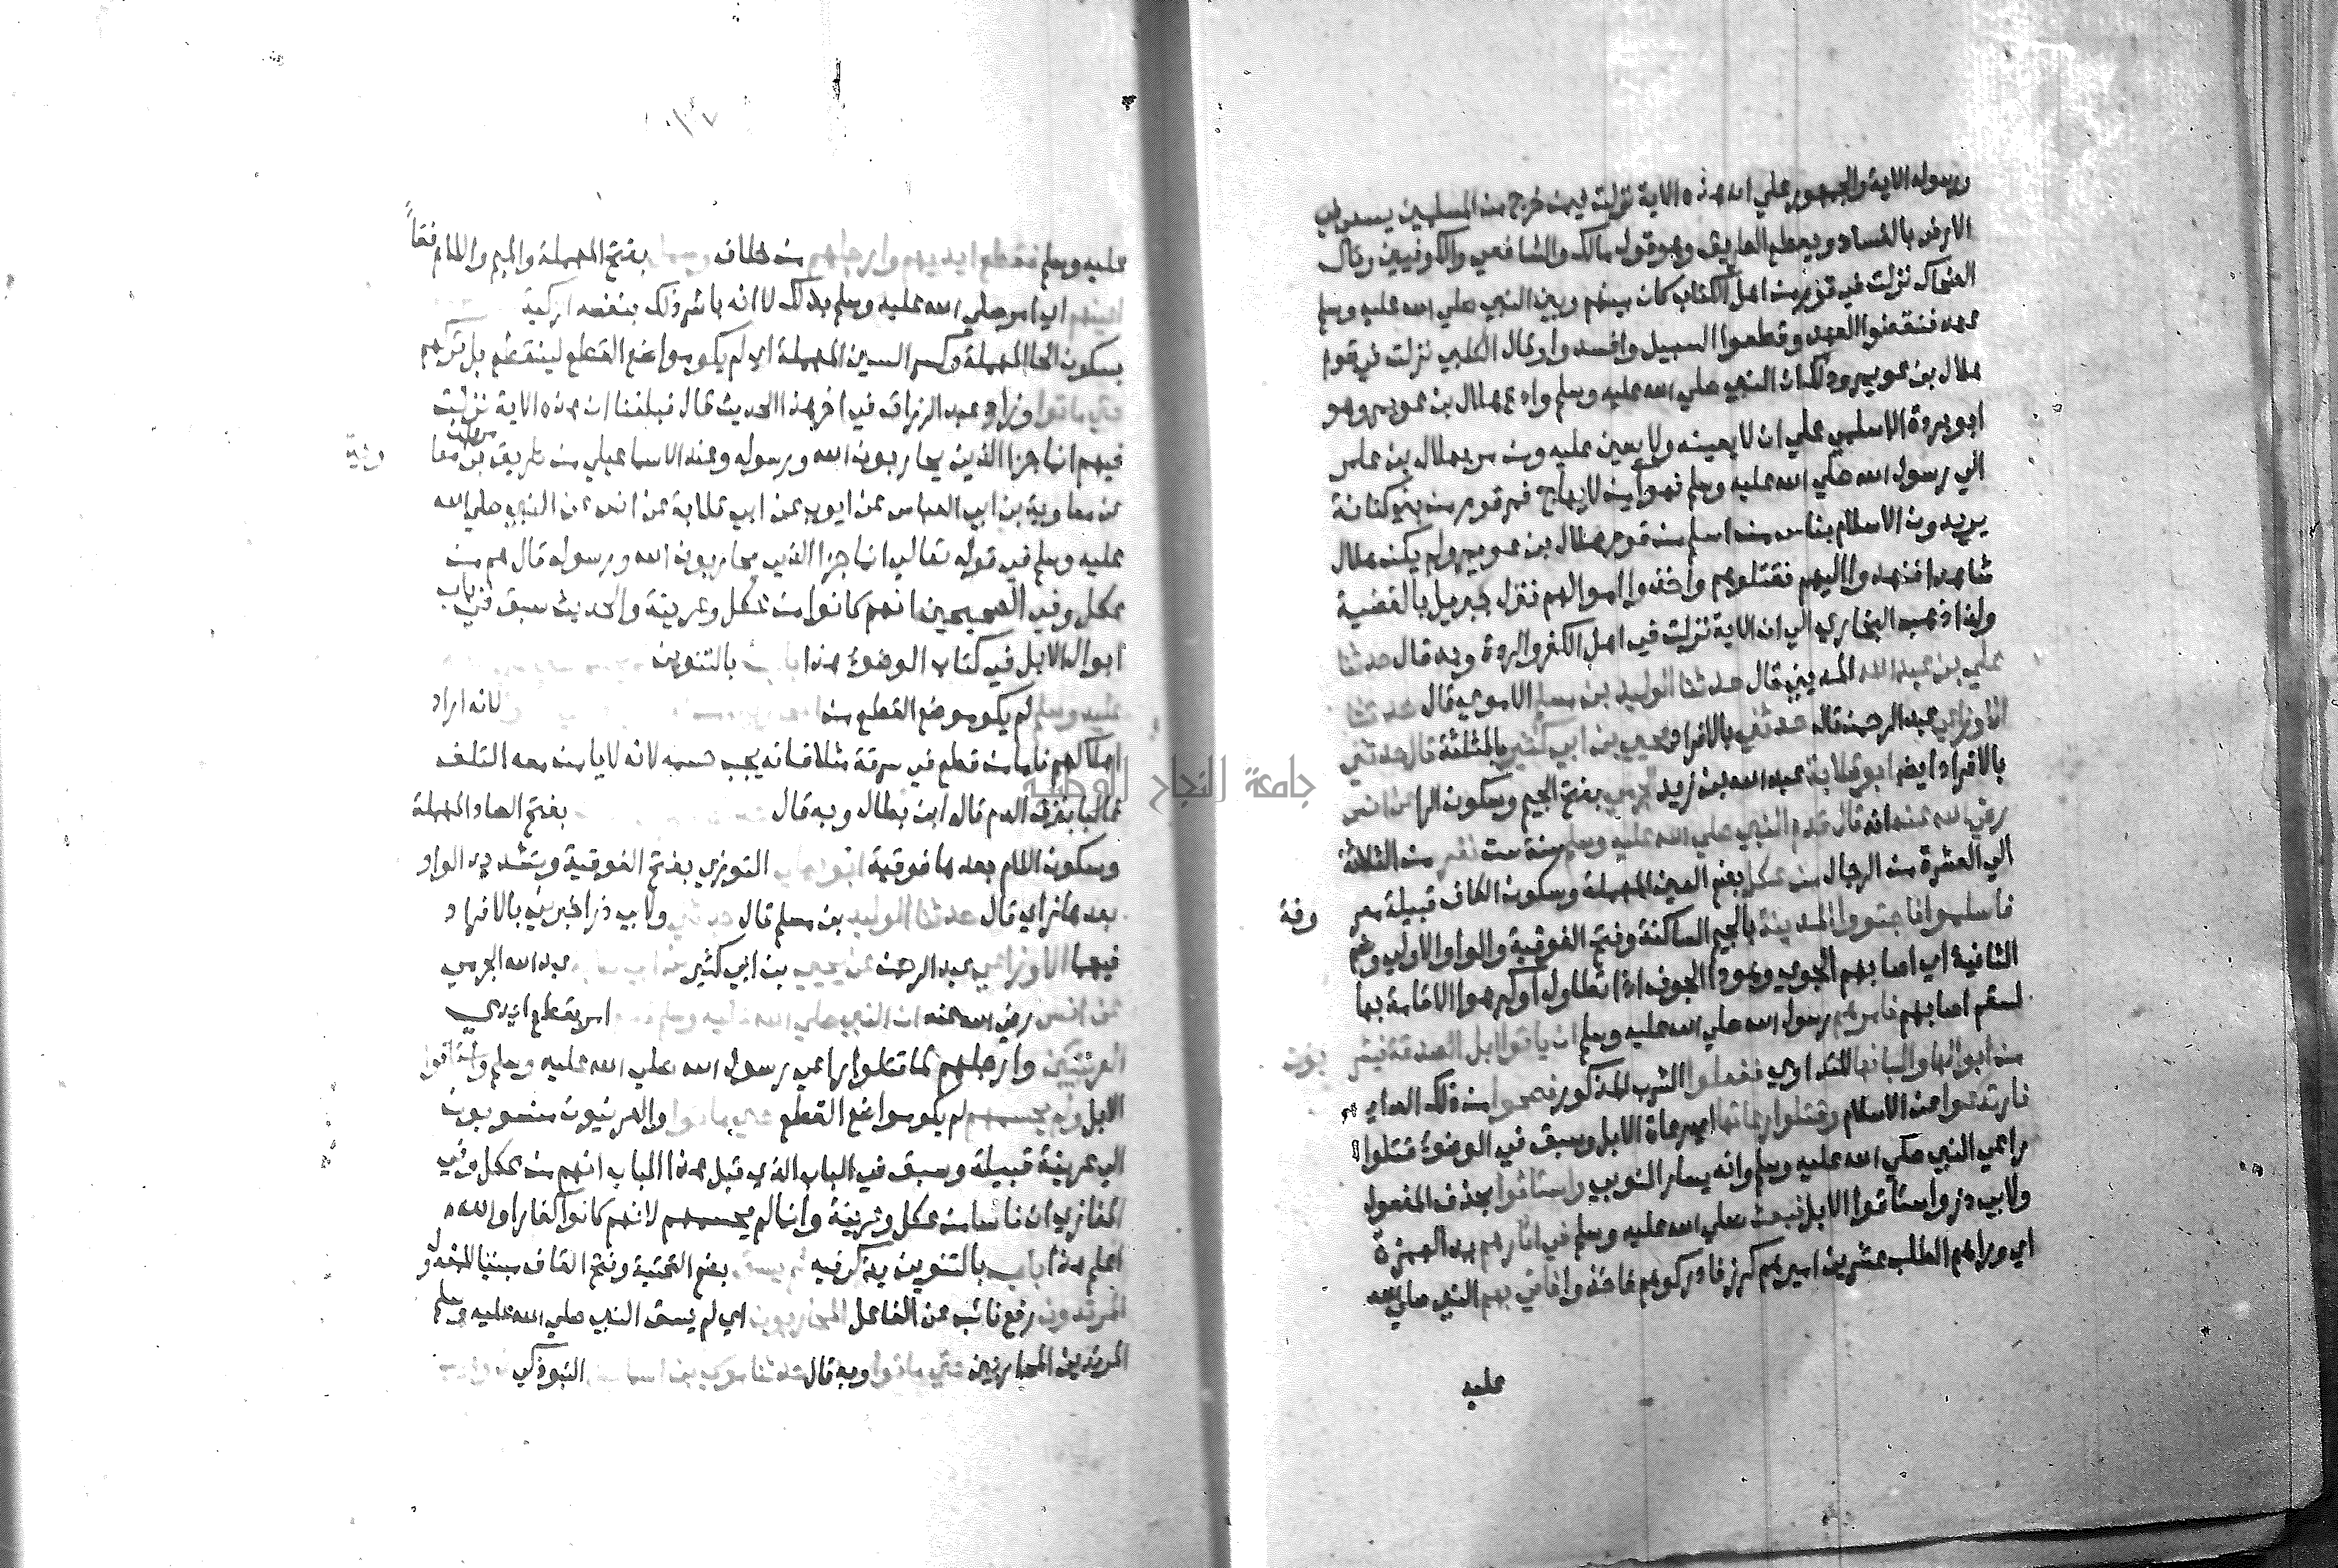 ورسوله الاية والجمهور علي ان هذه الاية نزلت فيمن خرج من المسلمين يسعي في
الارض بالفساد ويقطع الطريق وهو قول مالك والشافعي والكوفيين وقال
الضحاك نزلت في قوم من اهل الكتاب كان بينهم وبين النبي صلي الله عليه وسلم
عهد فنقضوا العهد وقطعوا السبيل وافسدوا وقال الكلبي نزلت في قوم
هلال بن عويمر وذلك ان النبي صلي الله عليه وسلم وادع هلال بن عويمر وهو
ابو بردة الاسلمي علي ان لا يعينه ولا يعين عليه ومن مر بهلال بن
الي رسول الله صلي الله عليه وسلم فهو امن لا يهاج فمر قوم من بني كنانة
يريدون الاسلام بناس من اسلم من قوم هلال بن عويمر ولم يكن هلال
شاهدا فنهدوا اليهم فقتلوهم واخذوا اموالهم فنزل جبريل بالقضية
ولهذا ذهب البخاري الي ان الاية نزلت في اهل الكفر والردة وبه قال حدثنا
علي بن عبد الله المديني قال حدثنا الوليد بن مسلم الاموي قال حدثنا
الاوزاعي عبد الرحمن قال حدثني بالافراد يحيي بن ابي كثير بالمثلثة قال حدثني
بالافراد ايضا ابو قلابة عبد الله بن زيد الجرمي بفتح الجيم وسكون الرا عن انس
رضي الله عنه انه قال قدم النبي صلي الله عليه وسلم سنة ست نفر من الثلاثة
الي العشرة من الرجال من عكل بضم العين المهملة وسكون الكاف قبيلة معر
وفة
فاسلموا فاجتووا المدينة بالجيم الساكنة وفتح الفوقية والواو الاولي وضم
الثانية اي اصابهم الجوي وهو دا الجوف اذا تطاول او كرهوا الاقامة بها
لسقم اصابهم فامرهم رسول الله صلي الله عليه وسلم ان ياتوا ابل الصدقة فيشر
بون
من ابوالها والبانها للتداوي ففعلوا الشرب المذكور فصحوا من ذلك الداء
فارتدوا عن الاسلام وقتلوا رعاتها اي رعاة الابل وسبق في الوضوء فقتلوا
راعي النبي صلي الله عليه وسلم وانه يسار النوبي واستاقوا بحذف المفعول
ولابي ذر واستاقوا الابل فبعث صلي الله عليه وسلم في اثارهم بمد الهمزة
اي وراهم الطلب عشرين اميرهم كرز فادركوهم فاخذوا فاتي بهم النبي صلي الله
عليه
عليه وسلم فقطع ايديهم وارجلهم من خلاف وسمل بفتح المهملة والميم واللام فقأ
اعينهم اي امر صلي الله عليه وسلم بذلك لا انه باشر ذلك بنفسه الزكية
بسكون الحا المهملة وكسر السين المهملة اي لم يكو مواضع القطع لينقطع بل تركهم
حتي ماتوا وزاد عبد الرزاق في اخر هذا الحديث قال فبلغنا ان هذه الاية نزلت
فيهم انما جزا الذين يحاربون الله ورسوله وعند الاسماعيلي من طريق مروان بن معا
وية
عن معاوية بن ابي العباس عن ايوب عن ابي قلابة عن انس عن النبي صلي الله
عليه وسلم في قوله تعالي انما جزا الذين يحاربون الله ورسوله قال هم من
عكل وفي الصحيحين انهم كانوا من عكل وعرينة والحديث سبق في باب
ابوال الابل في كتاب الوضوء هذا باب بالتنوين
عليه وسلم لم يكو موضع القطع من لانه اراد
اهلاكهم فاما من قطع في سرقة مثلا فانه يجب حسمه لانه لا يامن معه التلف
غالبا بنزف الدم قاله ابن بطال وبه قال بفتح الصاد المهملة
وسكون اللام بعدها فوقية ابو يعلي التوزي بفتح الفوقية وتشديد الواو
بعدها زاي قال حدثنا الوليد بن مسلم قال حدثني ولابي ذر اخبرني بالافراد
فيهما الاوزاعي عبد الرحمن عن يحيي بن ابي كثير عن ابي قلابة عبد الله الجرمي
عن انس رضي الله عنه ان النبي صلي الله عليه وسلم قطع امر بقطع ايدي
العرنيين وارجلهم لما قتلوا راعي رسول الله صلي الله عليه وسلم واستاقوا
الابل ولم يحسمهم لم يكو مواضع القطع حتي ماتوا والعرنيون منسوبون
الي عرينة قبيلة وسبق في الباب الذي قبل هذا الباب انهم من عكل وفي
المغازي ان ناسا من عكل وعرينة وانما لم يحسمهم لانهم كانوا كفارا والله
اعلم هذا باب بالتنوين يذكر فيه لم يسق بضم التحتية وفتح القاف مبنيا للمفعول و
المرتدون رفع نائب عن الفاعل المحاربون اي لم يسق النبي صلي الله عليه وسلم
المرتدين المحاربين حتي ماتوا وبه قال حدثنا موسي بن اسماعيل التبوذكي
جامعة النجاح الوطنية